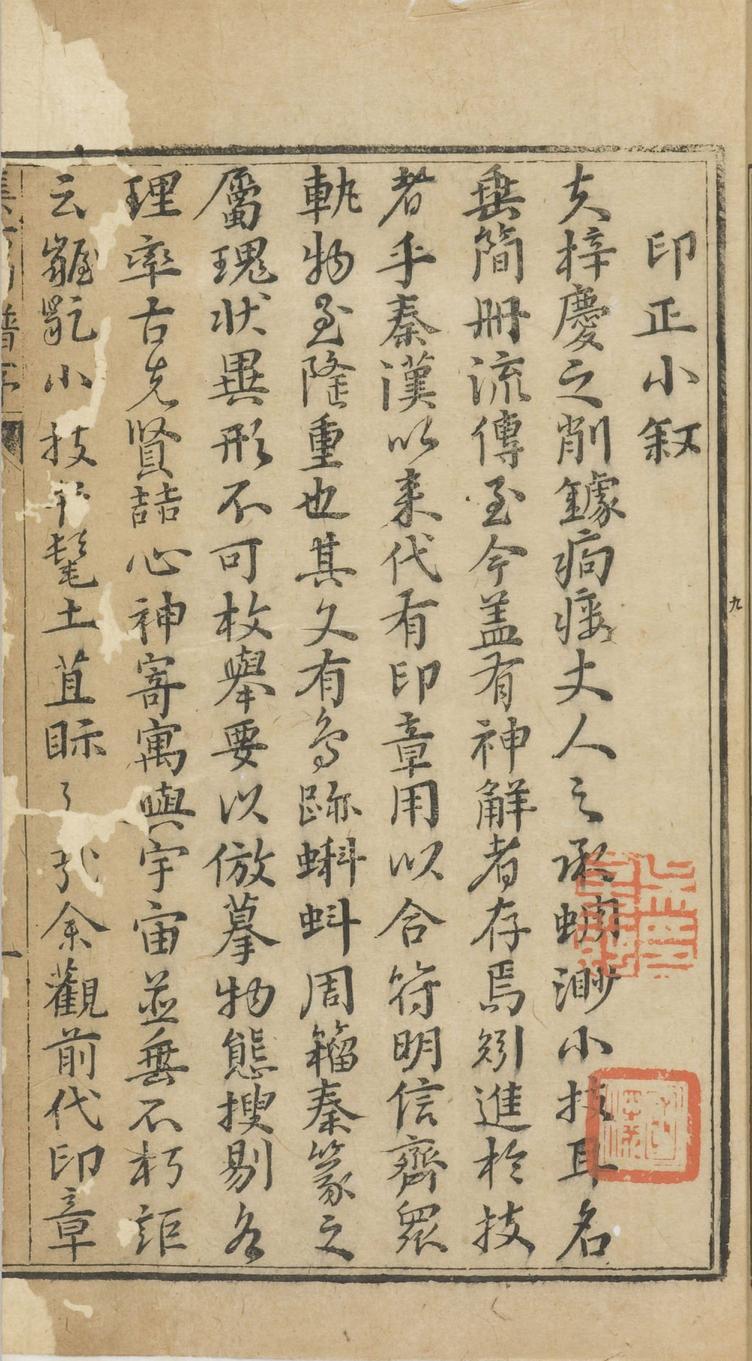 印正小叙
夫梓慶之削鐻痀瘻丈人之承蜩渺小技耳名
垂簡冊流傳至今蓋有神解者存焉矧進於技
者乎秦漢以来代有印章用以合符明信齊眾
軌物至隆重也其文有鳥跡蝌蚪周籀秦篆之
屬瑰狀異形不可枚舉要以倣摹物態搜剔名
理率古先賢喆心神寄寓與宇宙並垂不朽詎
云雕蟲小技髦土苴眎余觀前代印章
九